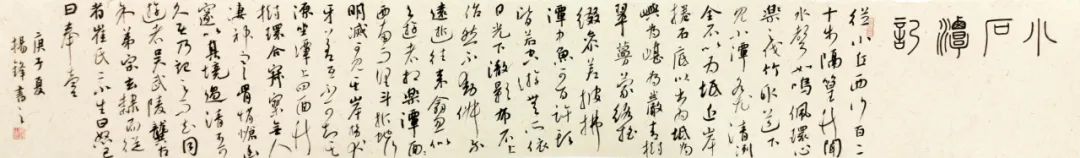 小石潭記
從小丘西行百二
十步隔篁竹聞
水聲如鳴佩環心
樂之伐竹取道下
見小潭水尤清洌
全石以為底近岸
卷石底以出為坻為
嶼為嵁為巖青樹
翠蔓蒙絡搖
綴參差披拂
潭中魚可百許頭
皆若空游無所依
日光下澈影布石上
佁然不動俶尔
遠逝往來翕忽似
與遊者相樂潭西
西南而望斗折蛇行
明滅可見其岸勢犬
牙差互不可知其
源坐潭上四面竹
樹環合寂寥無人
淒神寒骨悄愴幽
邃以其境過清不可
久居乃記之而去同
遊者吳武陵龔古
余弟宗玄隸而從
者崔氏二小生曰恕己
曰奉壹
庚子夏
楊鋒書之